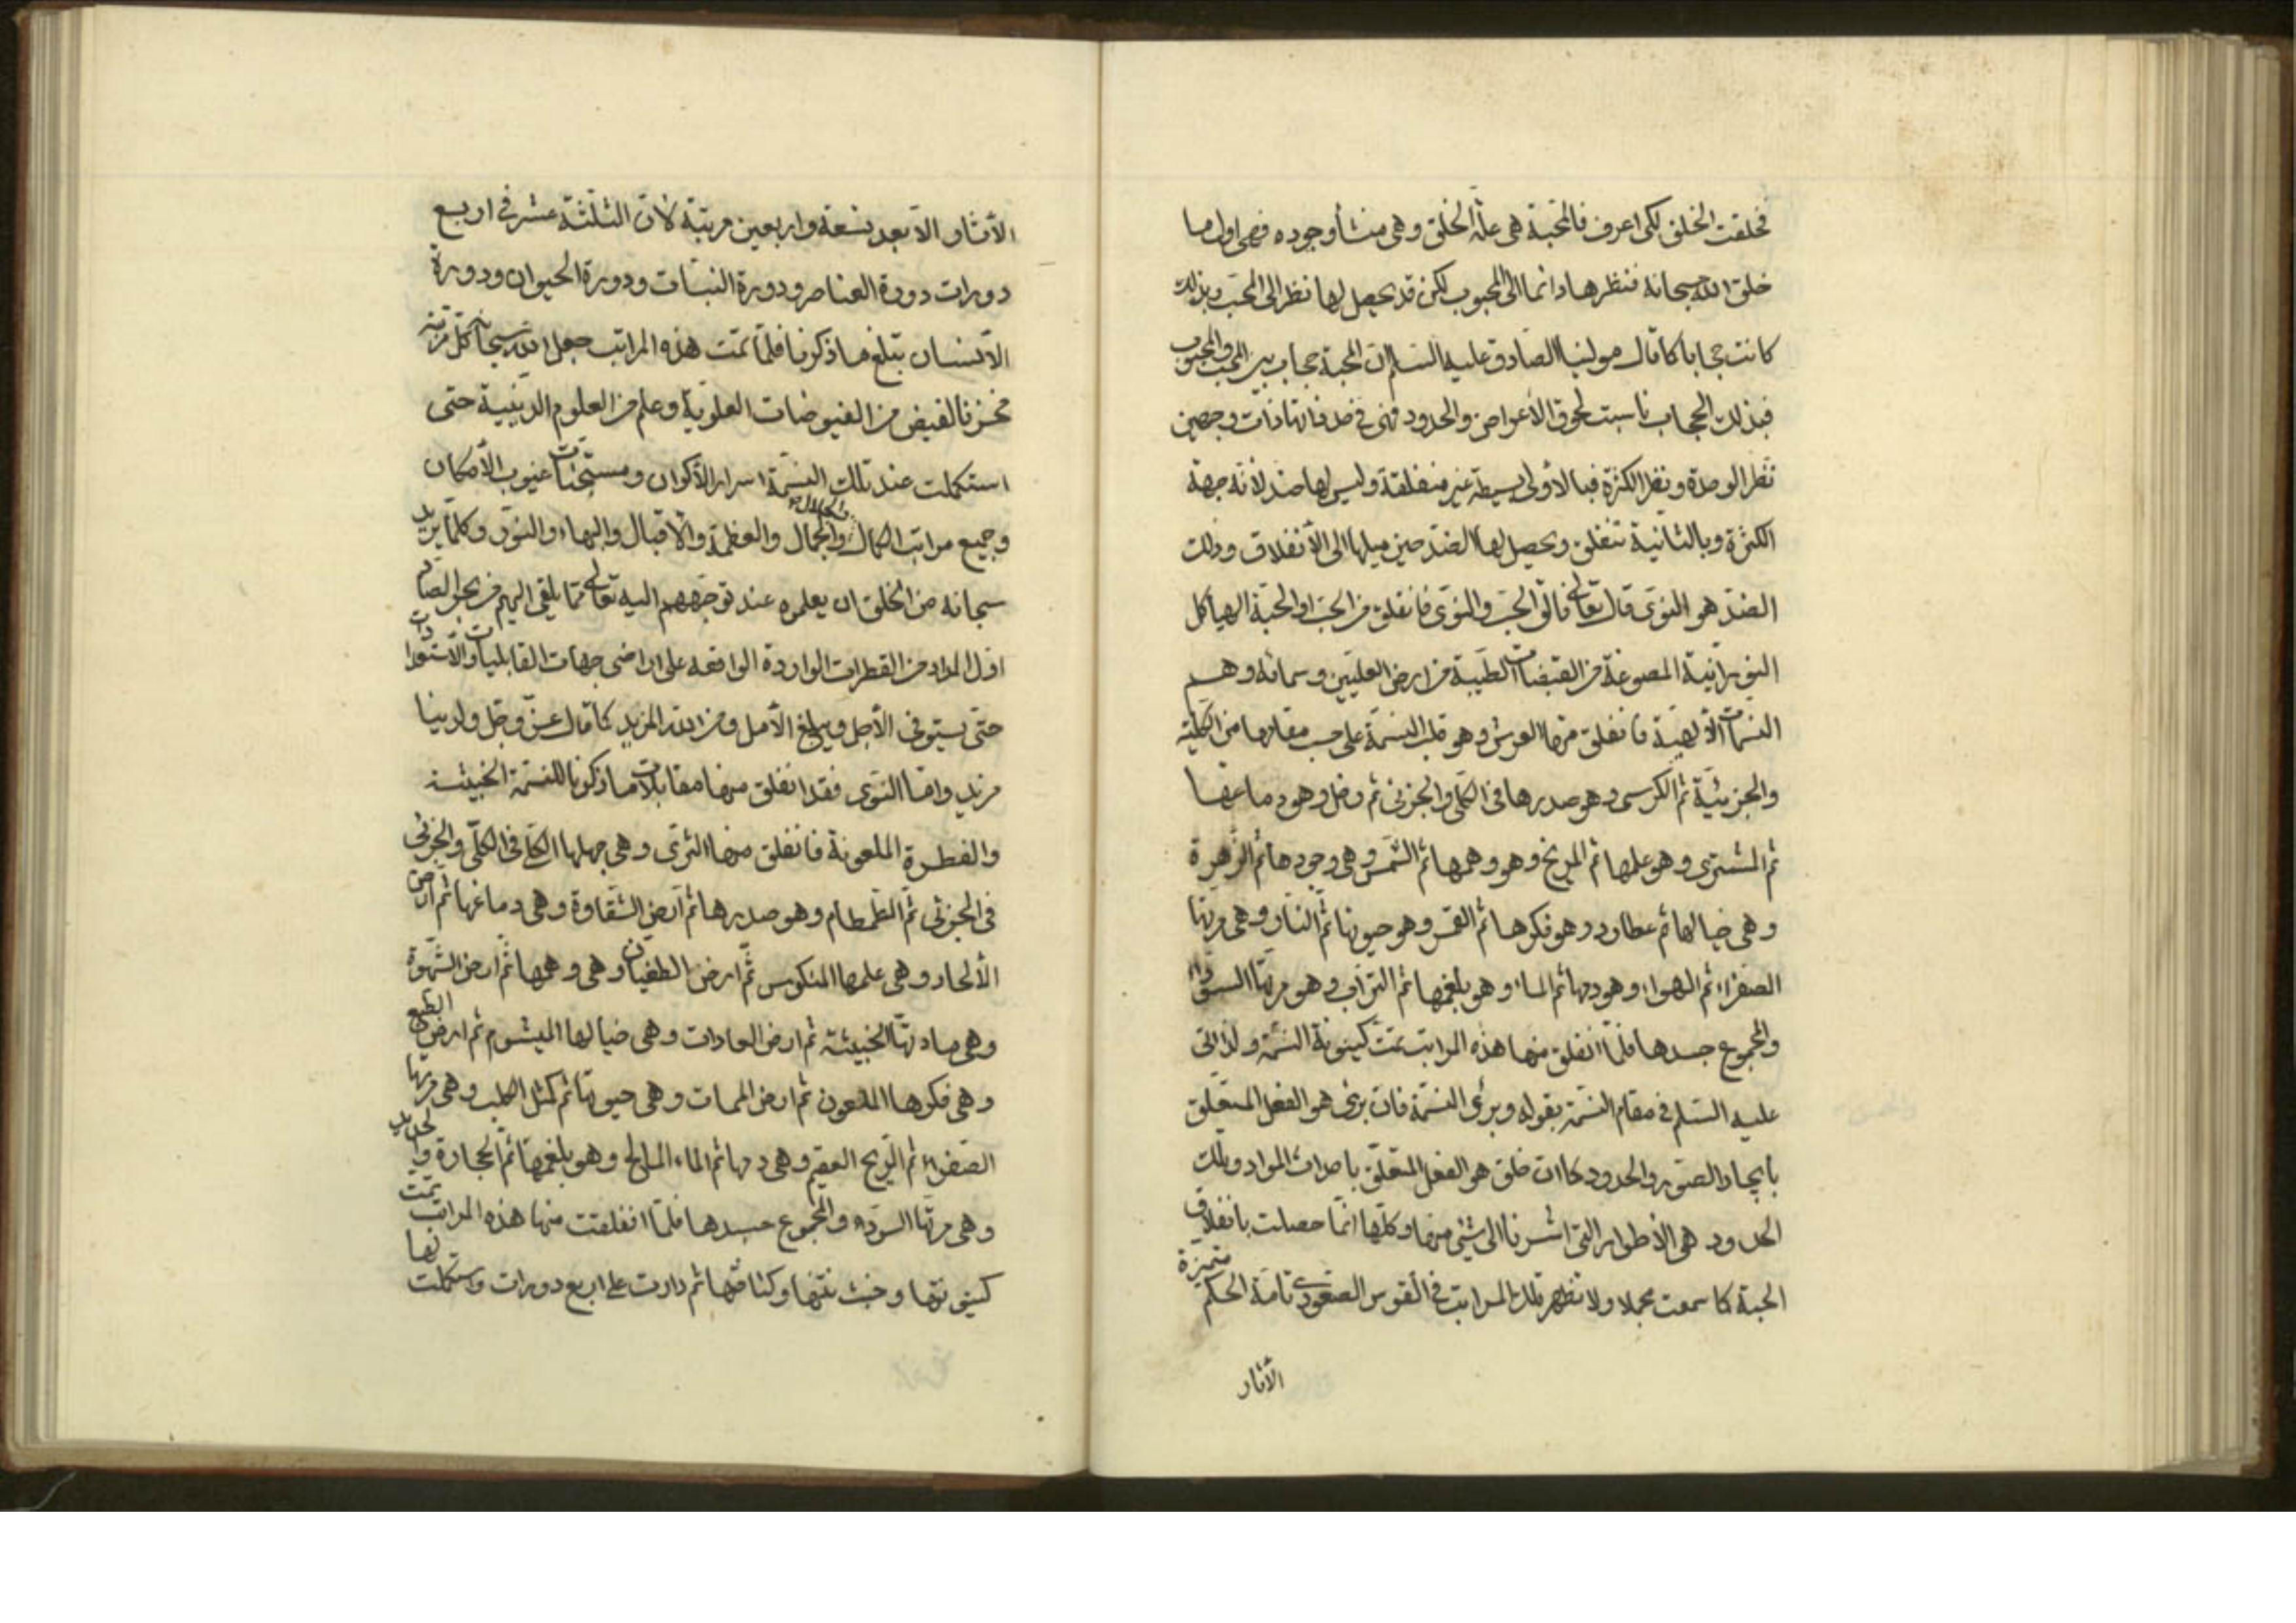 فخلقت الخلق لكي اعرف فالمحبة هي علّة الخلق وهي منشأ وجوده فهي اول ما
خلق الله سبحانه فنظرها دائما الى المحبوب لكن قد يحصل لها نظر الى المحب وبذلك
كانت حجابا كما قال مولينا الصادق عليه السلم ان المحبة حجاب بين المحب والمحبوب
فبذلك الحجاب ناسبت لحوق الأعراض والحدود فهي في حد ذاتها ذات وجهين
نظر الوحدة ونظر الكثرة فبالأولى بسيطة غير منفلقة وليس لها ضد لانه جهة
الكثرة وبالثانية تنفلق ويحصل لها الضد حين ميلها الى الأنفلاق وذلك
الضد هو النوى قال تعالى فالق الحب والنوى فانفلق من الحب او الحبة الهياكل
النورانية المصوغة من القبضات الطيبة من ارض العليين وسمائه وهم
النسمات الألهية فانفلق منها العرش وهو قلب النسمة على حسب مقامها من الكلية
والجزئية ثم الكرسي وهو صدرها في الكلي والجزئي ثم زحل وهو دماغها
ثم المشتري وهو علمها ثم المريخ وهو وهمها ثم الشمس وهي وجودها ثم الزهرة
وهي خيالها ثم عطارد وهو فكرها ثم القمر وهو حيوتها ثم النار وهي مرتها
الصفراء ثم الهواء وهو دمها ثم الماء وهو بلغمها ثم التراب وهو مرتها السوداء
والمجموع جسدها فلما انفلق منها هذه المراتب تمت كينونة النسمة ولذا اتى
عليه السلم في مقام النسمة بقوله وبرئ النسمة فان برئ هو الفعل المتعلق
بايجاد الصور والحدود كما ان خلق هو الفعل المتعلق باحداث المواد وتلك
الحدود هي الأطوار التي اشرنا الى شيء منها وكلها انما حصلت بانفلاق
الحبة كما سمعت مجملا ولا تظهر تلك المراتب في القوس الصعودي تامة الحكم متميزة
الأثار
الأثار الا بعد تسعة واربعين مرتبة لان الثلثة عشر في اربع
دورات دورة العناصر ودورة النبات ودورة الحيوان ودورة
الأنسان تبلغ ما ذكرنا فلما تمت هذه المراتب جعل الله سبحانه كل مرتبة
مخزنا لفيض من الفيوضات العلوية وعلم من العلوم الدينية حتى
استكملت عند تلك النسمة اسرار الأكوان ومستجنات غيوب الأمكان
وجميع مراتب الكمال والجمال والجلال والعظمة والأقبال والبهاء والنور وكلما يريد
سبحانه من الخلق ان يعلموه عند توجههم اليه تعالى مما يلقي اليهم من بحر الصاد
اول المداد من القطرات الواردة الواقعة على اراضي جهات القابليات والأستعدادات
حتى يستوفى الأجل ويبلغ الأمل ومن الله المزيد كما قال عز وجل ولدينا
مزيد واما النوى فقد انفلق منها مقابلات ما ذكرنا للنسمة الخبيثة
والفطرة الملعونة فانفلق منها الثرى وهي جهلها الكلي في الكلي والجزئي
في الجزئي ثم الطمطام وهو صدرها ثم ارض الشقاوة وهي دماغها ثم ارض
الألحاد وهي علمها المنكوس ثم ارض الطغيان وهي وهمها ثم ارض الشهوة
وهي مادتها الخبيثة ثم ارض العادات وهي خيالها الميشوم ثم ارض الطبع
وهي فكرها الملعون ثم ارض الممات وهي حيوتها ثم كمثل الكلب وهي مرتها
الصفراء ثم الريح العقيم وهي دمها ثم الماء المالح وهو بلغمها ثم الحجارة والحديد
وهي مرتها السوداء والمجموع جسدها فلما انفلقت منها هذه المراتب تمت
كينونتها وخبث نتنها وكثافتها ثم دارت على اربع دورات واستكملت